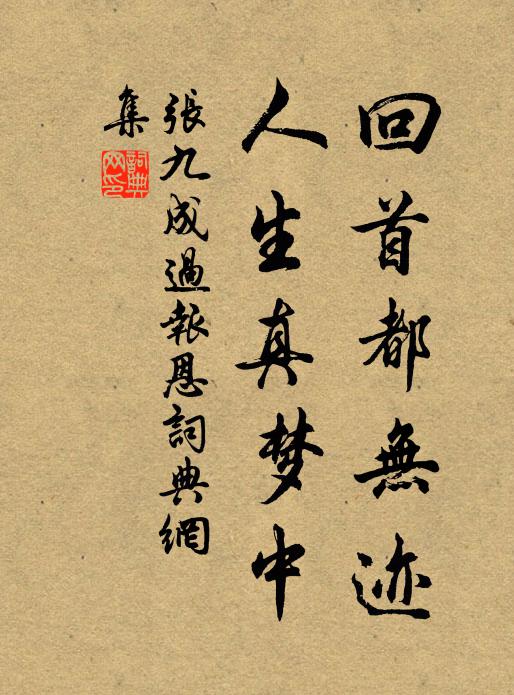 回首都無迹
人生真梦中
張九成過報恩詞典網
集
詞典网印